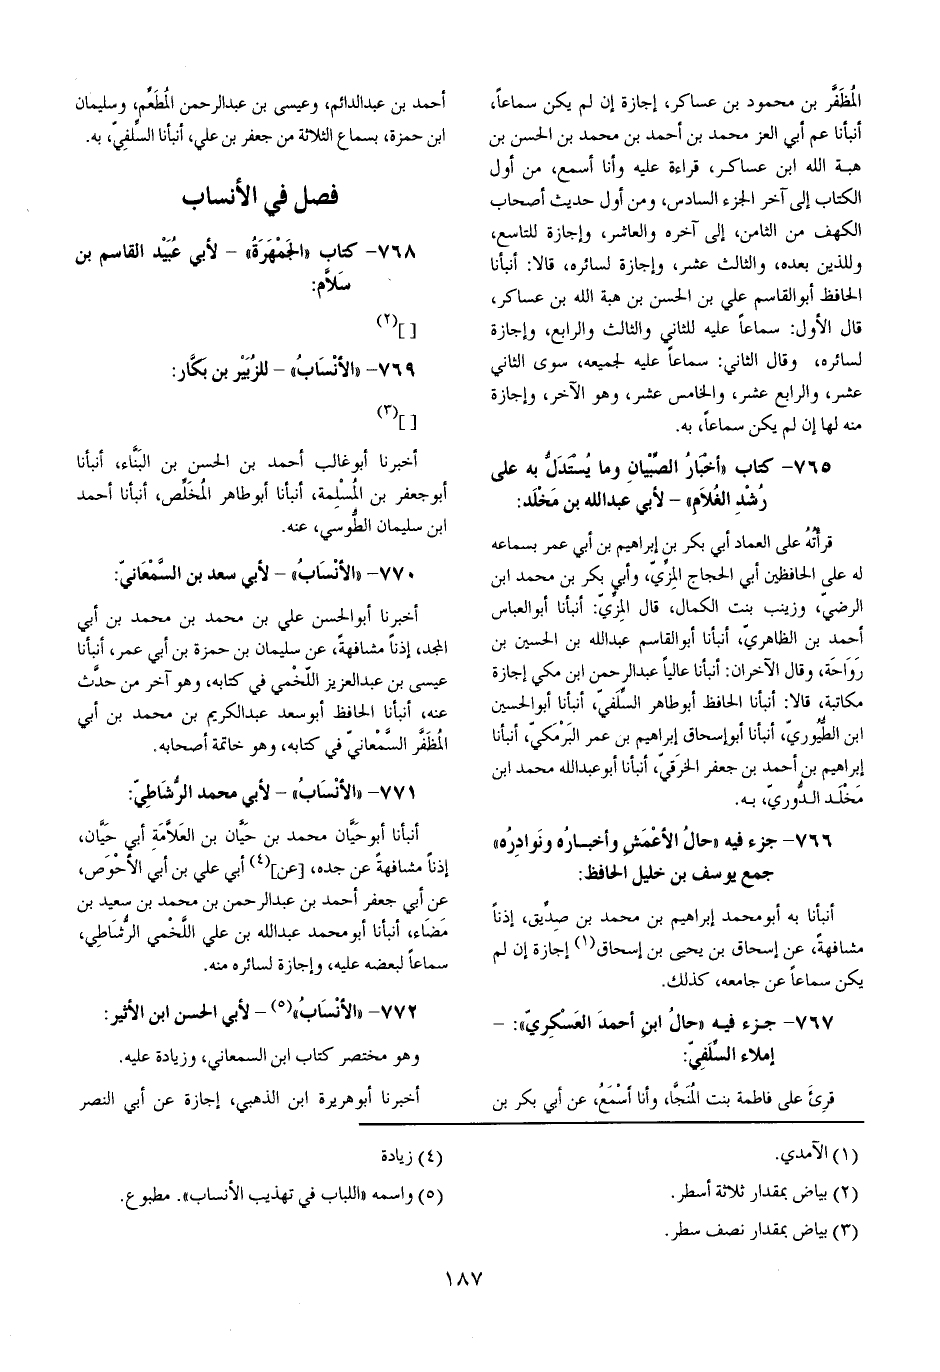 المُظَفَّر بن محمود بن عساكر، إجازة إن لم يكن سماعاً،
أنبأنا عم أبي العز محمد بن أحمد بن محمد بن الحسن بن
هبة الله ابن عساكر، قراءة عليه وأنا أسمع، من أول
الكتاب إلى آخر الجزء السادس، ومن أول حديث أصحاب
الكهف من الثامن، إلى آخره والعاشر، وإجازة للتاسع،
وللذين بعده، والثالث عشر، وإجازة لسائره، قالا: أنبأنا
الحافظ أبوالقاسم علي بن الحسن بن هبة الله بن عساكر،
قال الأول: سماعاً عليه للثاني والثالث والرابع، وإجازة
لسائره، وقال الثاني: سماعاً عليه لجميعه، سوى الثاني
عشر، والرابع عشر، والخامس عشر، وهو الآخر، وإجازة
منه لها إن لم يكن سماعاً، به.
٧٦٥- كتاب «أَخْبَارُ الصِّبْيَانِ وما يُسْتَدَلُّ به على
رُشْدِ الغُلَامِ» – لأبي عبدالله بن مَخْلَد:
قرأتُهُ على العماد أبي بكر بن إبراهيم بن أبي عمر بسماعه
له على الحافظين أبي الحجاج المِزّيّ، وأبي بكر بن محمد ابن
الرضيّ، وزينب بنت الكمال، قال المِزّيّ: أنبأنا أبوالعباس
أحمد بن الظاهريّ، أنبأنا أبوالقاسم عبدالله بن الحسين بن
رَوَاحَة، وقال الآخران: أنبأنا عالياً عبدالرحمن ابن مكي إجازة
مكاتبة، قالا: أنبأنا الحافظ أبوطاهر السِّلَفيّ، أنبأنا أبوالحسين
ابن الطُّيُوريّ، أنبأنا أبوإسحاق إبراهيم بن عمر البَرْمَكيّ، أنبأنا
إبراهيم بن أحمد بن جعفر الخِرَقيّ، أنبأنا أبوعبدالله محمد ابن
مَخْلَد الدُّوريّ، به.
٧٦٦- جزء فيه «حالُ الأَعْمَشِ وأخبارُه ونَوادِرُه»
جمع يوسف بن خليل الحافظ:
أنبأنا به أبومحمد إبراهيم بن محمد بن صدِّيق، إذناً
مشافهةً، عن إسحاق بن يحيى بن إسحاق(١) إجازة إن لم
يكن سماعاً عن جامعه، كذلك.
٧٦٧- جزء فيه «حالُ ابنِ أحمدَ العَسْكَريّ»: –
إملاء السِّلَفيّ:
قرِئَ على فاطمة بنت المُنَجَّا، وأنا أَسْمَعُ، عن أبي بكر بن
أحمد بن عبدالدائم، وعيسى بن عبدالرحمن المُطَعِّم، وسليمان
ابن حمزة، بسماع الثلاثة من جعفر بن علي، أنبأنا السِّلَفيّ، به.
فصل في الأنساب
٧٦٨- كتاب «الجَمْهَرَةُ» – لأبي عُبَيْد القاسم بن
سَلاَّم:
[ ](٢)
٧٦٩- «الأنْسَابُ» – للزُبَيْر بن بَكَّار:
[ ](٣)
أخبرنا أبوغالب أحمد بن الحسن بن البَنَّاء، أنبأنا
أبوجعفر بن المُسْلِمة، أنبأنا أبوطاهر المُخَلِّص، أنبأنا أحمد
ابن سليمان الطُّوسي، عنه.
٧٧٠- «الأنْسَابُ» – لأبي سعد بن السَّمْعَانيّ:
أخبرنا أبوالحسن علي بن محمد بن محمد بن أبي
المجد، إذناً مشافهةً، عن سليمان بن حمزة بن أبي عمر، أنبأنا
عيسى بن عبدالعزيز اللَّخْمي في كتابه، وهو آخر من حدَّث
عنه، أنبأنا الحافظ أبوسعد عبدالكريم بن محمد بن أبي
المُظَفَّر السَّمْعانيّ في كتابه، وهو خاتمة أصحابه.
٧٧١- «الأنْسَابُ» – لأبي محمد الرُّشَاطيّ:
أنبأنا أبوحَيَّان محمد بن حَيَّان بن العَلاَّمَةِ أبي حَيَّان،
إذناً مشافهةً عن جده، [عن](٤) أبي علي بن أبي الأَحْوَص،
عن أبي جعفر أحمد بن عبدالرحمن بن محمد بن سعيد بن
مَضَاء، أنبأنا أبومحمد عبدالله بن علي اللَّخْمي الرُّشَاطي،
سماعاً لبعضه عليه، وإجازة لسائره منه.
٧٧٢- «الأنْسَابُ»(٥) – لأبي الحسن ابن الأثير:
وهو مختصر كتاب ابن السمعاني، وزيادة عليه.
أخبرنا أبوهريرة ابن الذهبي، إجازة عن أبي النصر
(١) الآمدي.
(٢) بياض بمقدار ثلاثة أسطر.
(٣) بياض بمقدار نصف سطر.
(٤) زيادة
(٥) واسمه «اللباب في تهذيب الأنساب». مطبوع.
١٨٧